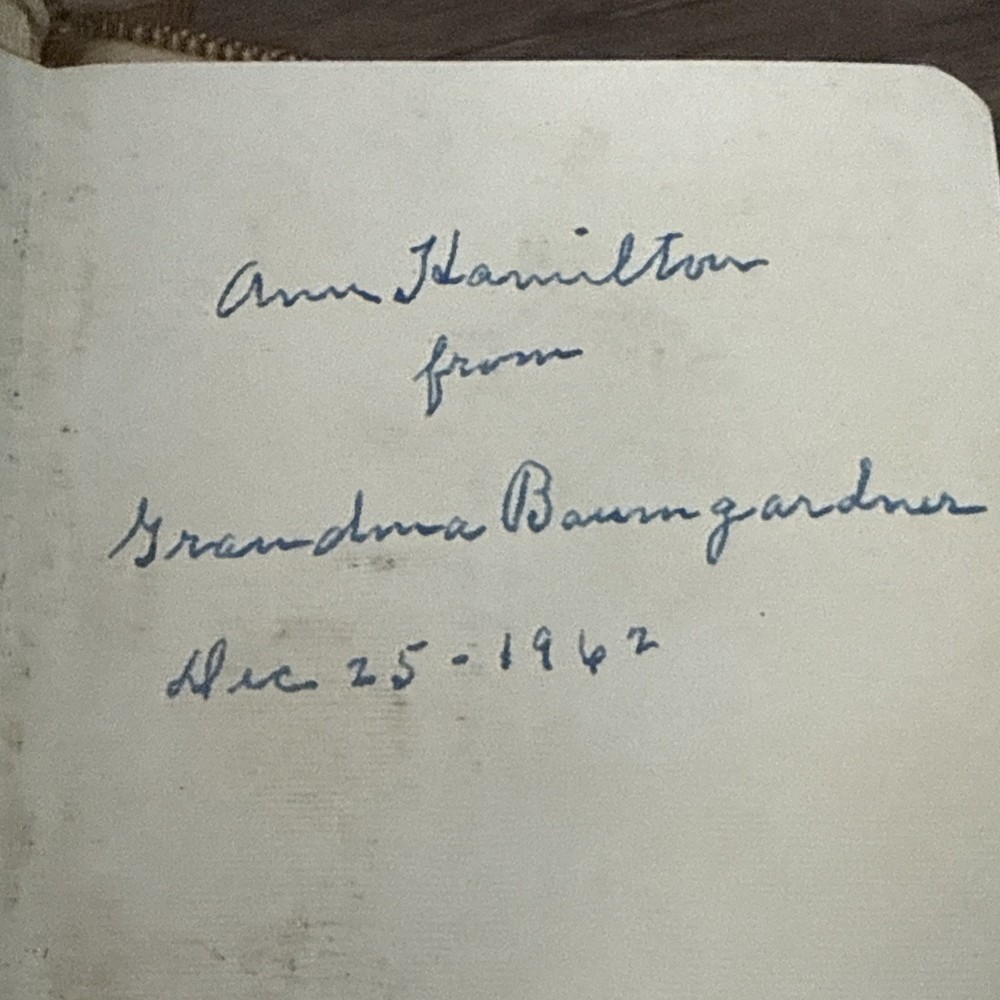 Ann Hamilton
from
Grandma Baumgardner
Dec 25-1962